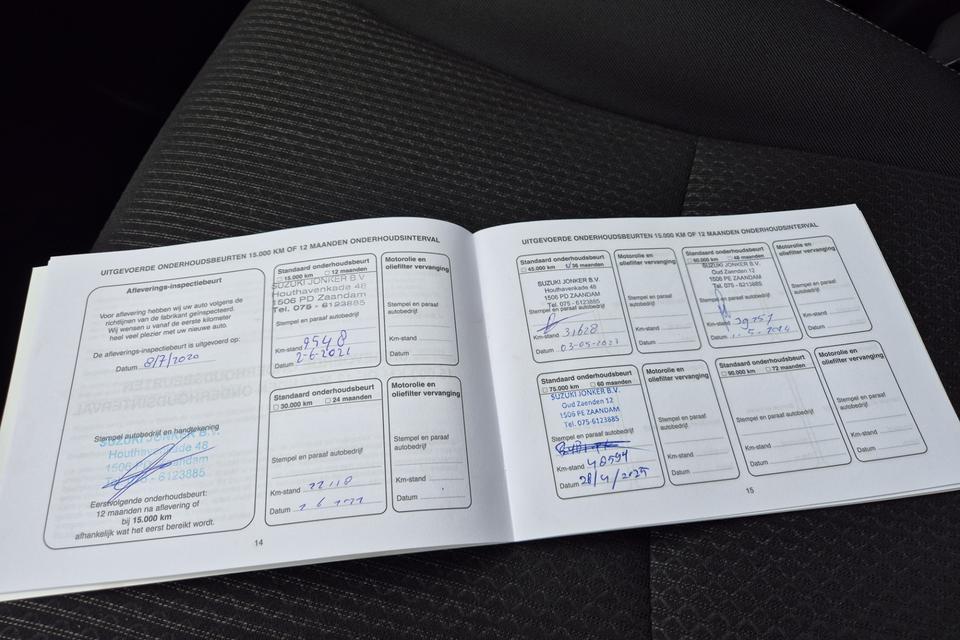 UITGEVOERDE ONDERHOUDSBEURTEN 15.000 KM OF 12 MAANDEN ONDERHOUDSINTERVAL
Aflevering-inspectiebeurt
Voor aflevering hebben wij uw auto volgens de
richtlijnen van de fabrikant geïnspecteerd.
Wij wensen u vanaf de eerste kilometer
heel veel plezier met uw nieuwe auto.
De afleverings-inspectiebeurt is uitgevoerd op:
Datum 8/7/2020
Stempel autobedrijf en handtekening
SUZUKI JONKER B.V.
Houthavenkade 48
1506 Zaandam
- 6123885
Eerstvolgende onderhoudsbeurt:
12 maanden na aflevering of
bij 15.000 km
afhankelijk wat het eerst bereikt wordt.
Standaard onderhoudsbeurt
15.000 km 12 maanden
SUZUKI JONKER B.V.
Houthavenkade 48
1506 PD Zaandam
Tel. 075 - 6123885
Stempel en paraaf autobedrijf
Km-stand 9548
Datum 2-6-2021
Motorolie en
oliefilter vervanging
Stempel en paraaf
autobedrijf
Km-stand
Datum
Standaard onderhoudsbeurt
30.000 km 24 maanden
Stempel en paraaf autobedrijf
Km-stand 22118
Datum
Motorolie en
oliefilter vervanging
Stempel en paraaf
autobedrijf
Km-stand
Datum
14
UITGEVOERDE ONDERHOUDSBEURTEN 15.000 KM OF 12 MAANDEN ONDERHOUDSINTERVAL
Standaard onderhoudsbeurt
45.000 km 36 maanden
SUZUKI JONKER B.V.
Houthavenkade 48
1506 PD ZAANDAM
Tel. 075 - 6123885
Stempel en paraaf autobedrijf
Km-stand 31628
Datum
Motorolie en
oliefilter vervanging
Stempel en paraaf
autobedrijf
Km-stand
Datum
Standaard onderhoudsbeurt
60.000 km 48 maanden
SUZUKI JONKER B.V.
Oud Zaenden 12
1506 PE ZAANDAM
Tel. 075 - 6123885
Stempel en paraaf autobedrijf
Km-stand
Datum
Motorolie en
oliefilter vervanging
Stempel en paraaf
autobedrijf
Km-stand
Datum
Standaard onderhoudsbeurt
75.000 km 60 maanden
SUZUKI JONKER B.V.
Oud Zaenden 12
1506 PE ZAANDAM
Tel. 075-6123885
Stempel en paraaf autobedrijf
Km-stand 48594
Datum 28/4/2025
Motorolie en
oliefilter vervanging
Stempel en paraaf
autobedrijf
Km-stand
Datum
Standaard onderhoudsbeurt
90.000 km 72 maanden
Stempel en paraaf autobedrijf
Km-stand
Datum
Motorolie en
oliefilter vervanging
Stempel en paraaf
autobedrijf
Km-stand
Datum
15